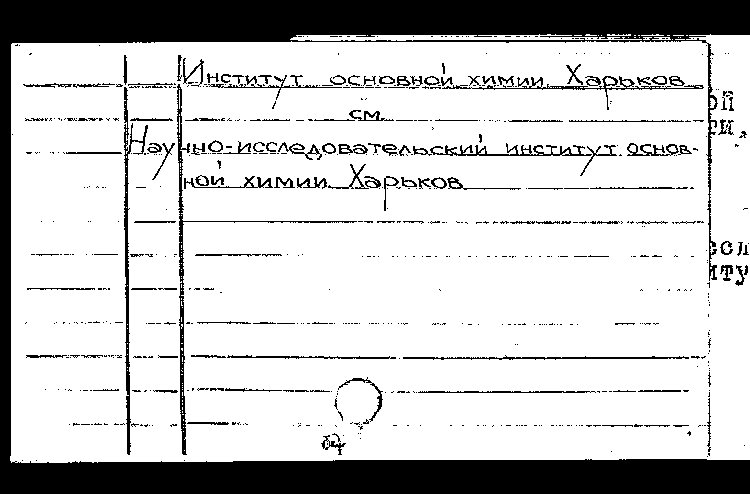 Институт основной химии Харьков
см.
Научно-исследовательский институт основ-
ной химии. Харьков
ой
ти,
сол
иту